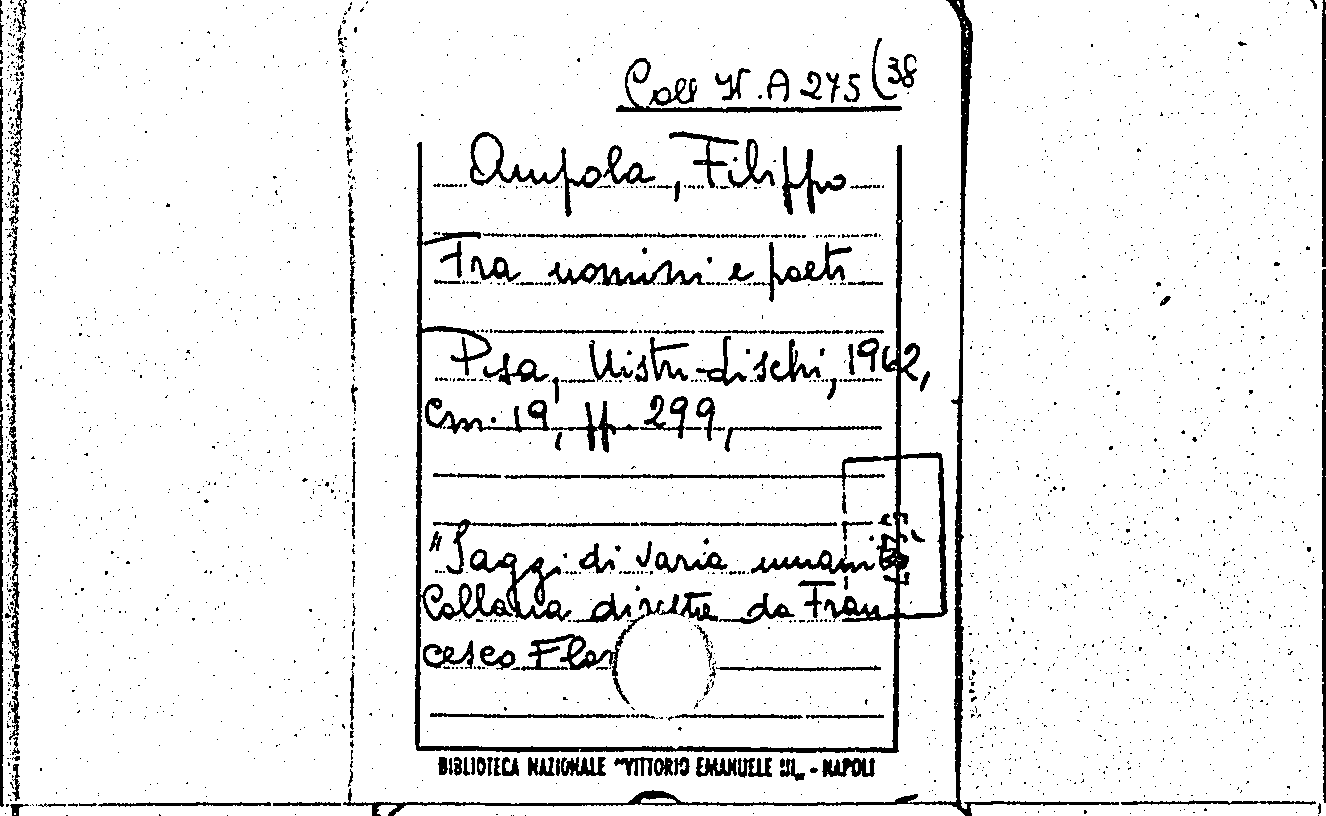 Coll. N. A 275 (38
Ampola, Filippo
Fra uomini e poeti
Pisa, Nistri-Lischi, 1962,
cm. 19, pp. 299,
"Saggi di varia umanità
Collana dirette da Fran
cesco Flor
BIBLIOTECA NAZIONALE "VITTORIO EMANUELE III„ - NAPOLI